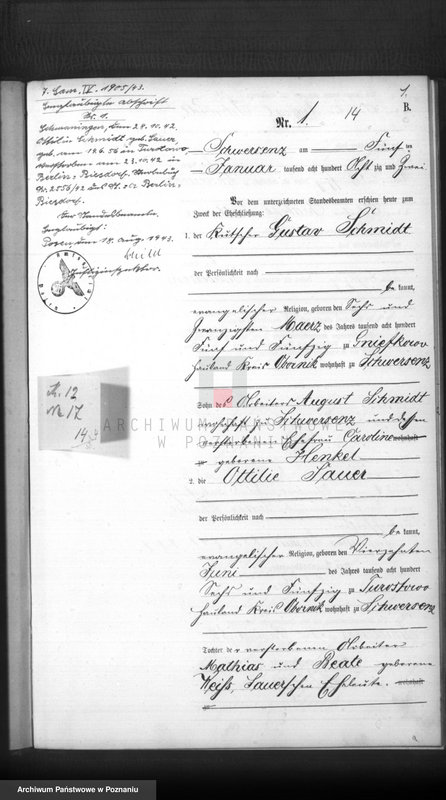 7. Gam. IV. 1905/43.
Beglaubigte Abschrift
Nr. 1.
den 24.10.42.
Ottilie Schmidt geb. Sauer,
geb. am 14.6.56 in Turostowo
verstorben am 23.10.42 in
Berlin-Biesdorf. Sterbebuch
Nr. 2556/42 des St. A. Berlin-
Biesdorf.
Der Standesbeamte.
Beglaubigt:
Posen, den 18. Aug. 1943.
Justizinspektor.
1.
B.
Nr. 1. 14
Schwersenz am Fünften
Januar tausend acht hundert Acht zig und Zwei
Vor dem unterzeichneten Standesbeamten erschien heute zum
Zweck der Eheschließung:
1. der Kutscher Gustav Schmidt
der Persönlichkeit nach
be kannt,
evangelischer Religion, geboren den Sechs und
Zwanzigsten Maerz des Jahres tausend acht hundert
Fünf und Fünfzig zu Gniefkowo
Hauland Kreis Obornik wohnhaft zu Schwersenz
Sohn des Arbeiters August Schmidt
zu Schwersenz und dessen
verstorbenen Ehefrau Caroline wohnhaft
zu geborene Henkel
2. die Ottilie Sauer
der Persönlichkeit nach
be kannt,
evangelischer Religion, geboren den Vierzehnten
Juni des Jahres tausend acht hundert
Sechs und Fünfzig zu Turostowo
Hauland Kreis Obornik wohnhaft zu Schwersenz
Tochter der verstorbenen Arbeiter
Mathias und Beate geborene
Weiss, Sauerschen Eheleute. wohnhaft
zu
N. 12
N 17
14
ARCHIWUM PAŃSTWOWE
W POZNANIU
Archiwum Państwowe w Poznaniu